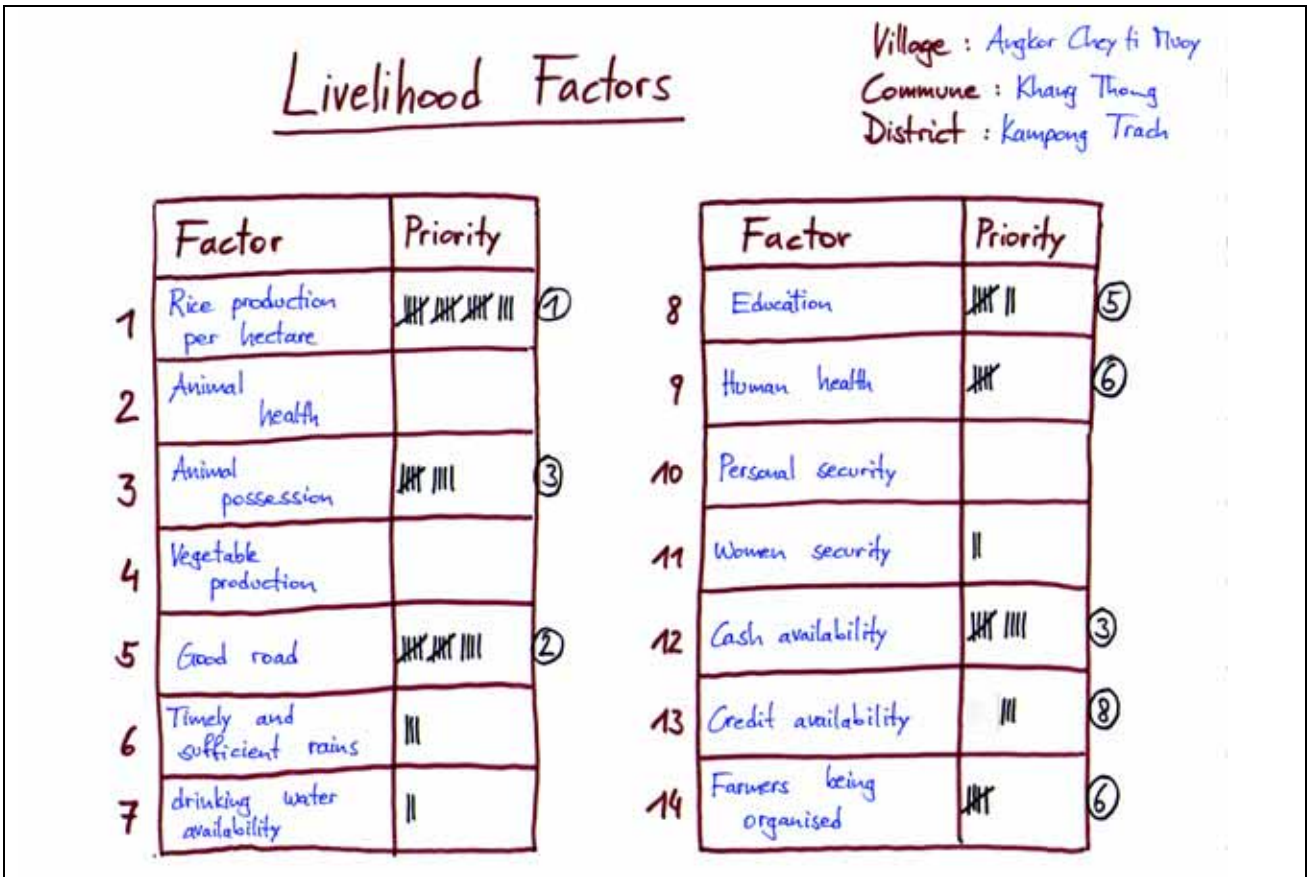 Livelihood Factors
Village : Angkor Chey ti Muoy
Commune : Khang Thong
District : Kampong Trach
Factor Priority
1 Rice production
per hectare 𝍸 𝍸 𝍸 ||| ①
2 Animal
health
3 Animal
possession 𝍸 |||| ③
4 Vegetable
production
5 Good road 𝍸 𝍸 |||| ②
6 Timely and
sufficient rains |||
7 drinking water
availability ||
Factor Priority
8 Education 𝍸 || ⑤
9 Human health 𝍸 ⑥
10 Personal security
11 Women security ||
12 Cash availability 𝍸 |||| ③
13 Credit availability ||| ⑧
14 Farmers being
organised 𝍸 ⑥